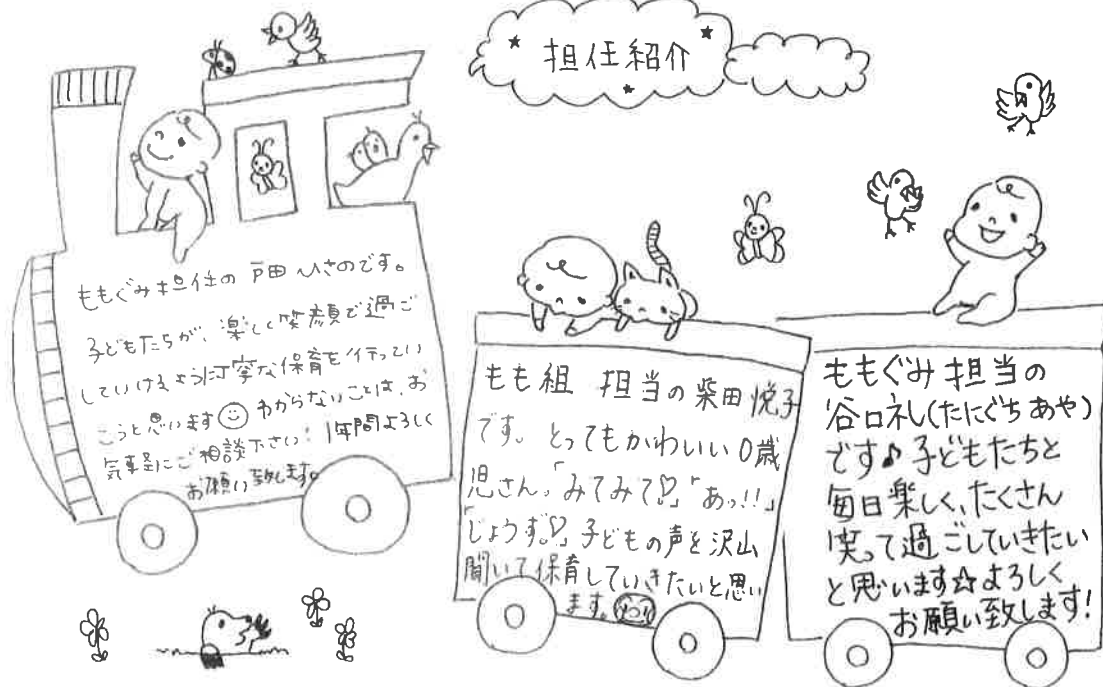 担任紹介
ももぐみ担任の 戸田 ひさのです。
子どもたちが、楽しく笑顔で過ご
していけるように丁寧な保育を行ってい
こうと思います わからないことは、お
気軽にご相談下さい! 1年間よろしく
お願い致します。
もも組 担当の柴田 悦子
です。 とってもかわいい0歳
児さん。「みてみて♡」「あっ!!」
「じょうず♡」子どもの声を沢山
聞いて保育していきたいと思い
ます。
ももぐみ 担当の
谷口礼(たにぐち あや)
です♪子どもたちと
毎日楽しく、たくさん
笑って過ごしていきたい
と思います☆よろしく
お願い致します!